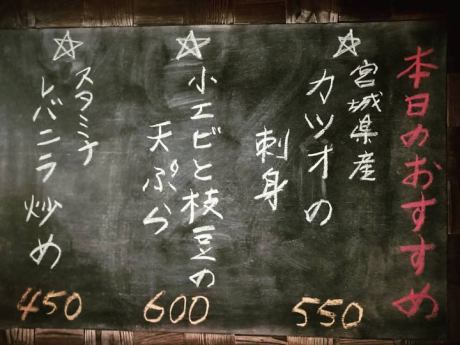 本日のおすすめ
☆
宮城県産
カツオの
刺身
550
☆
小エビと枝豆の
天ぷら
600
☆
スタミナ
レバニラ炒め
450